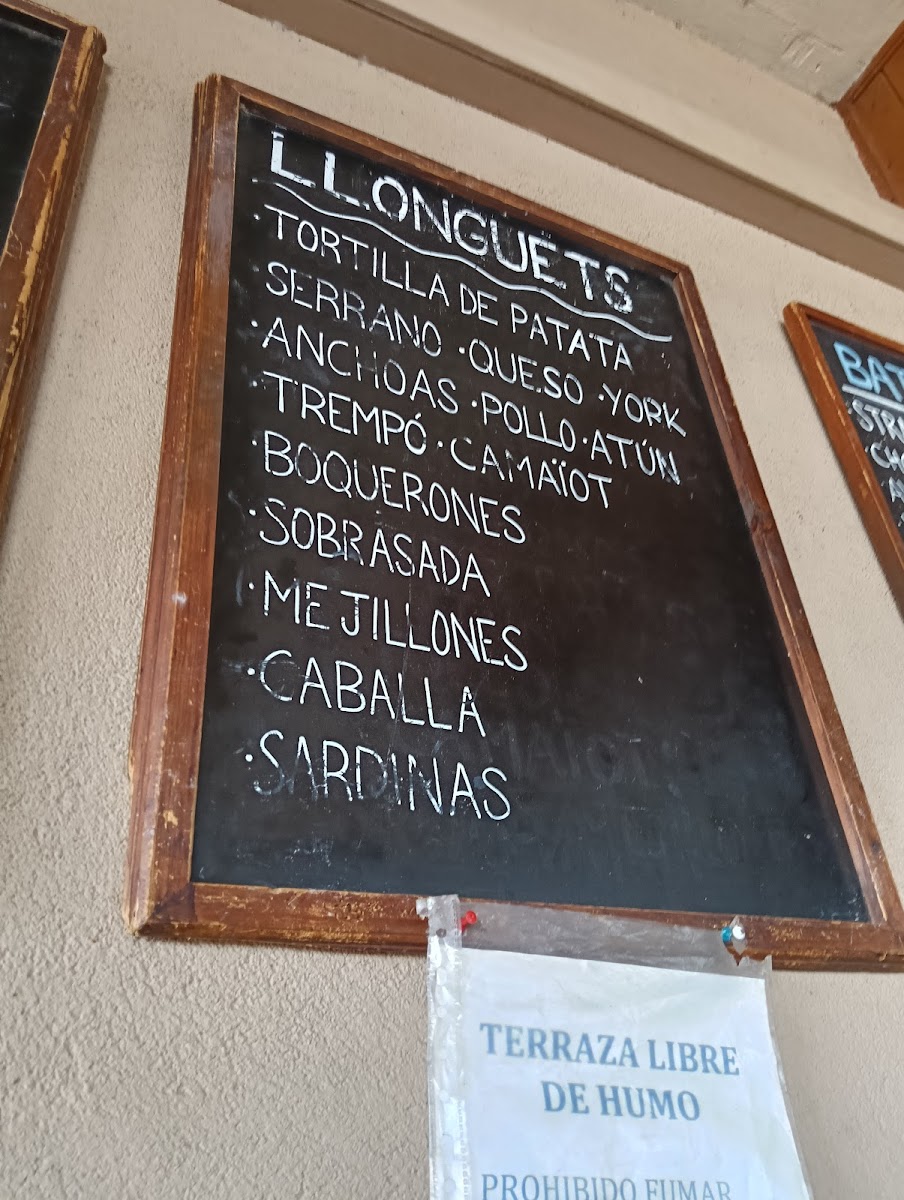 LLONGUETS
·TORTILLA DE PATATA
·SERRANO ·QUESO ·YORK
·ANCHOAS ·POLLO ·ATÚN
·TREMPÓ ·CAMAÏOT
·BOQUERONES
·SOBRASADA
·MEJILLONES
·CABALLA
·SARDINAS
TERRAZA LIBRE
DE HUMO
PROHIBIDO FUMAR